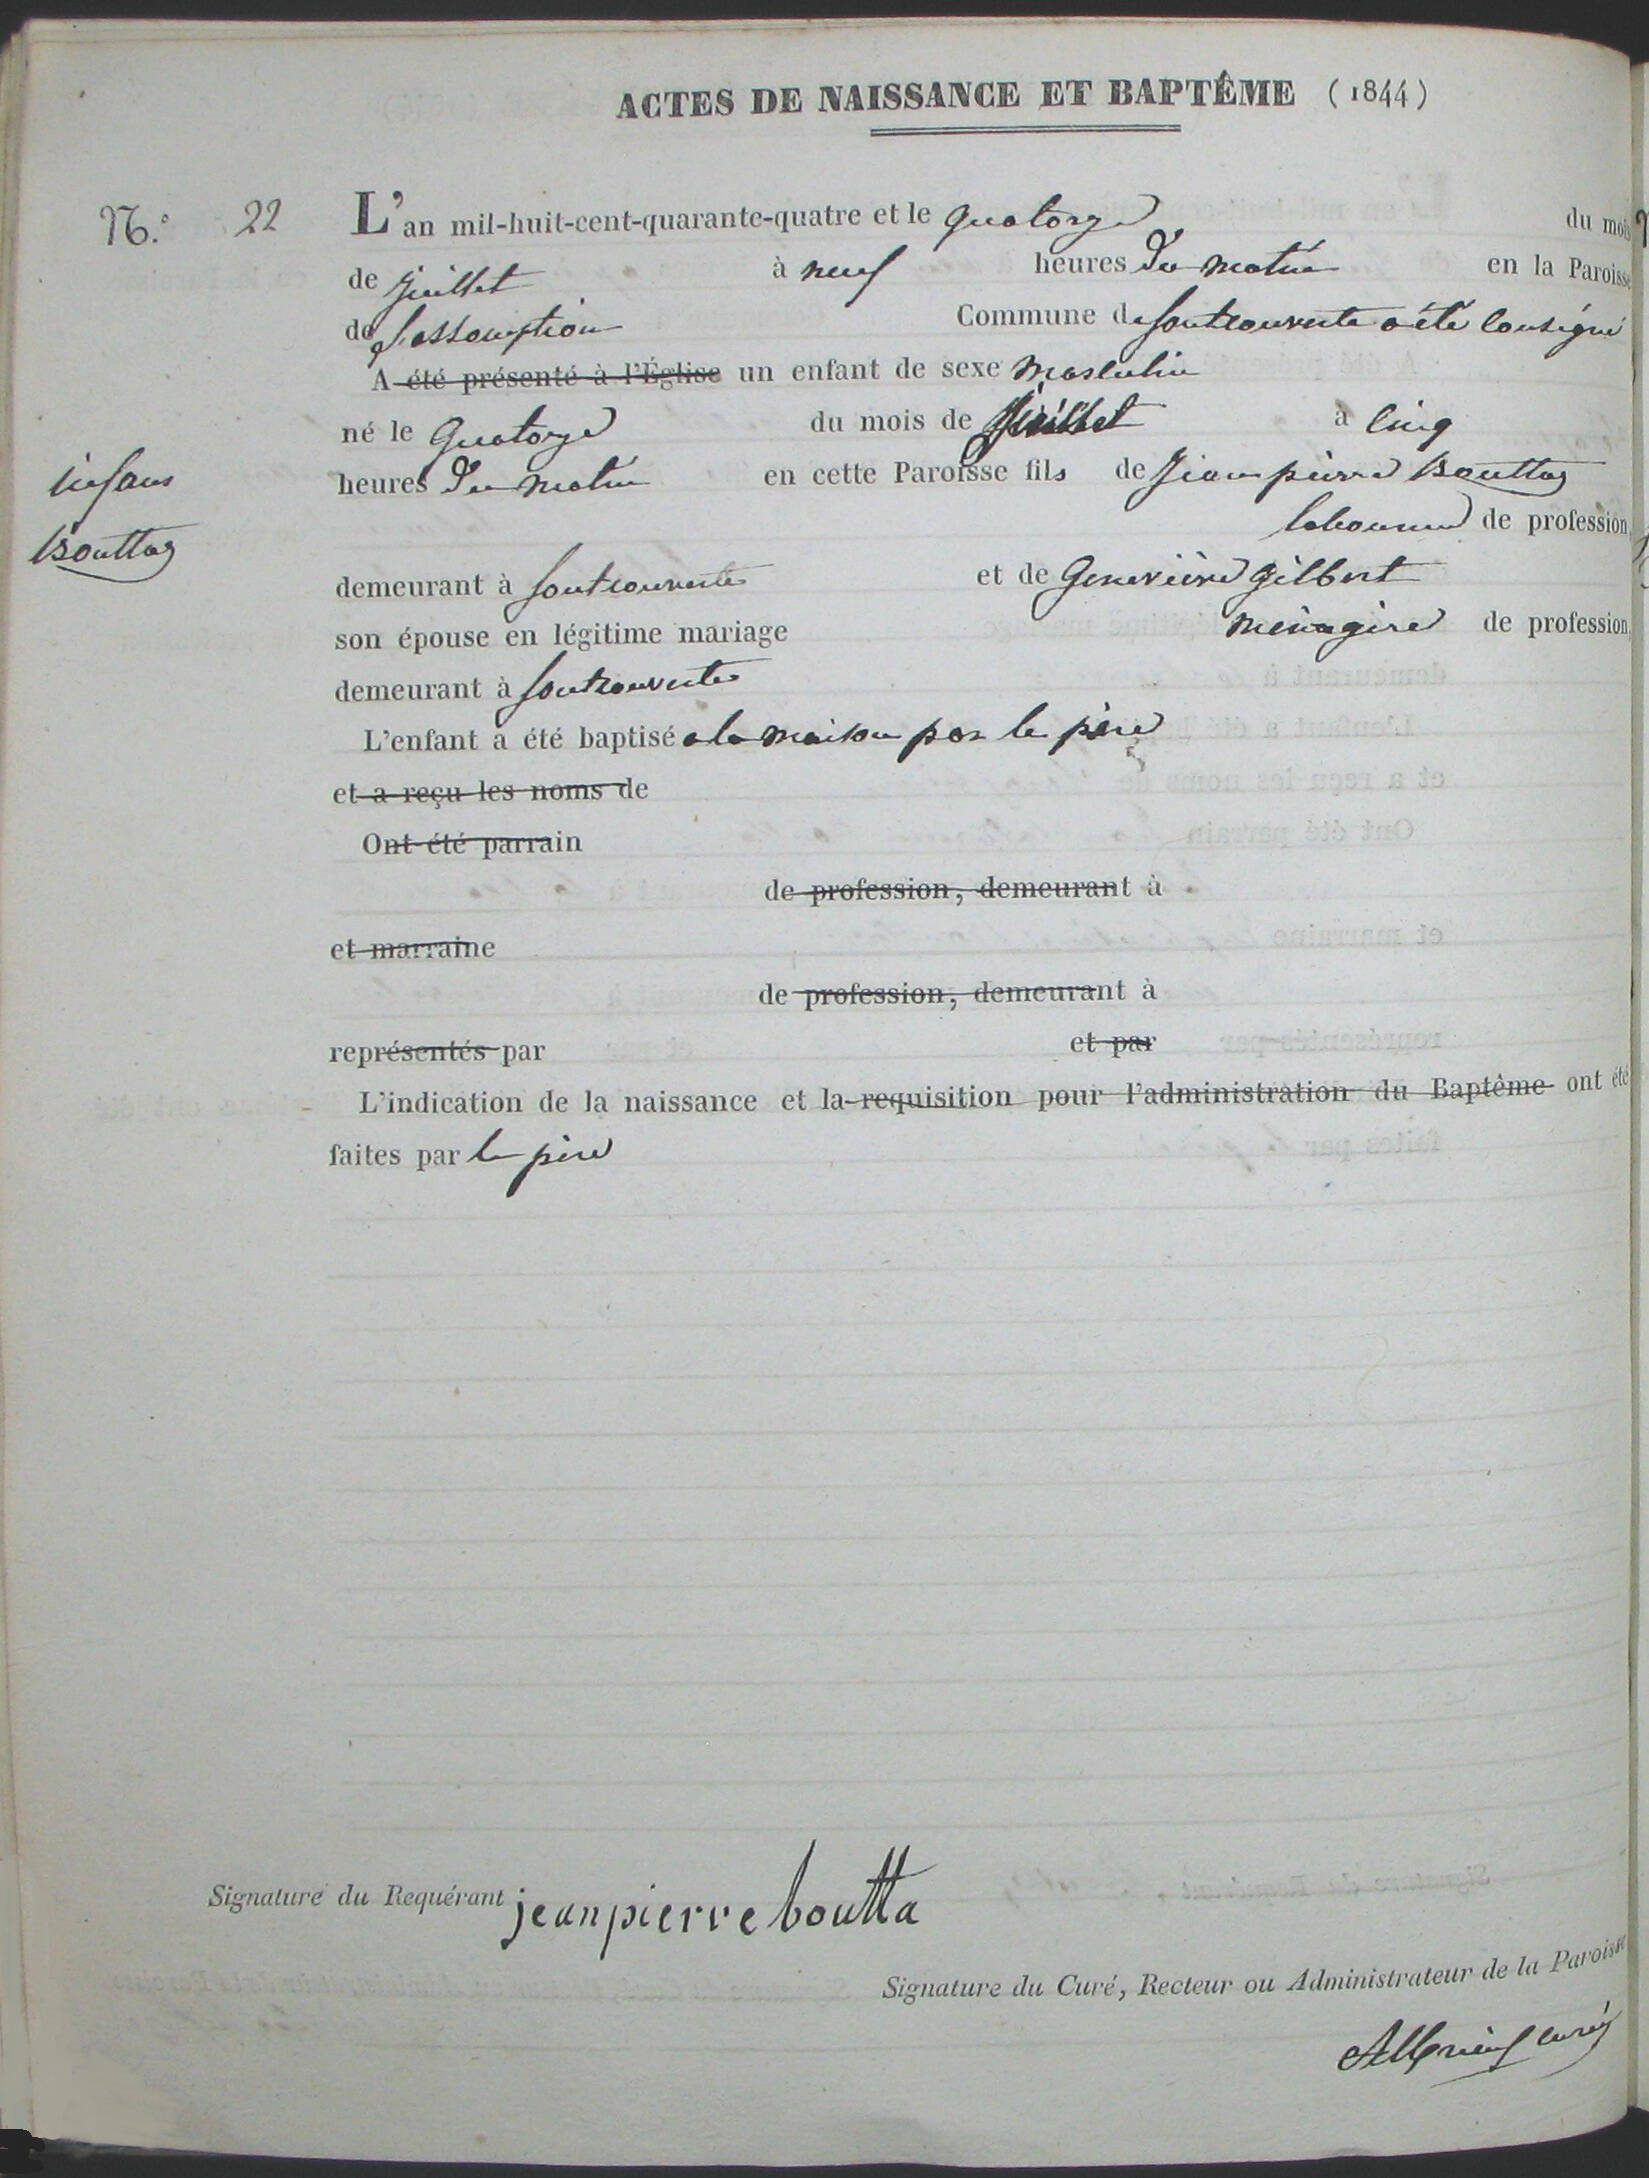 ACTES DE NAISSANCE ET BAPTÊME (1844)
N.° 22
L'an mil-huit-cent-quarante-quatre et le quatorze du mois
de juillet à neuf heures du matin en la Paroisse
de l'assomption Commune de fontcouverte a été consigné
A été présenté à l'Église un enfant de sexe masculin
né le quatorze du mois de juillet à cinq
heures du matin en cette Paroisse fils de jean pierre Bouttaz
laboureur de profession,
demeurant à fontcouverte et de Geneviève Gilbert
son épouse en légitime mariage ménagère de profession,
demeurant à fontcouverte
L'enfant a été baptisé a la maison par le père
et a reçu les noms de
Ont été parrain
de profession, demeurant à
et marraine
de profession, demeurant à
représentés par et par
L'indication de la naissance et la requisition pour l'administration du Baptême ont été
faites par le père
infans
Bouttaz
Signature du Requérant jean pierre boutta
Signature du Curé, Recteur ou Administrateur de la Paroisse
curé